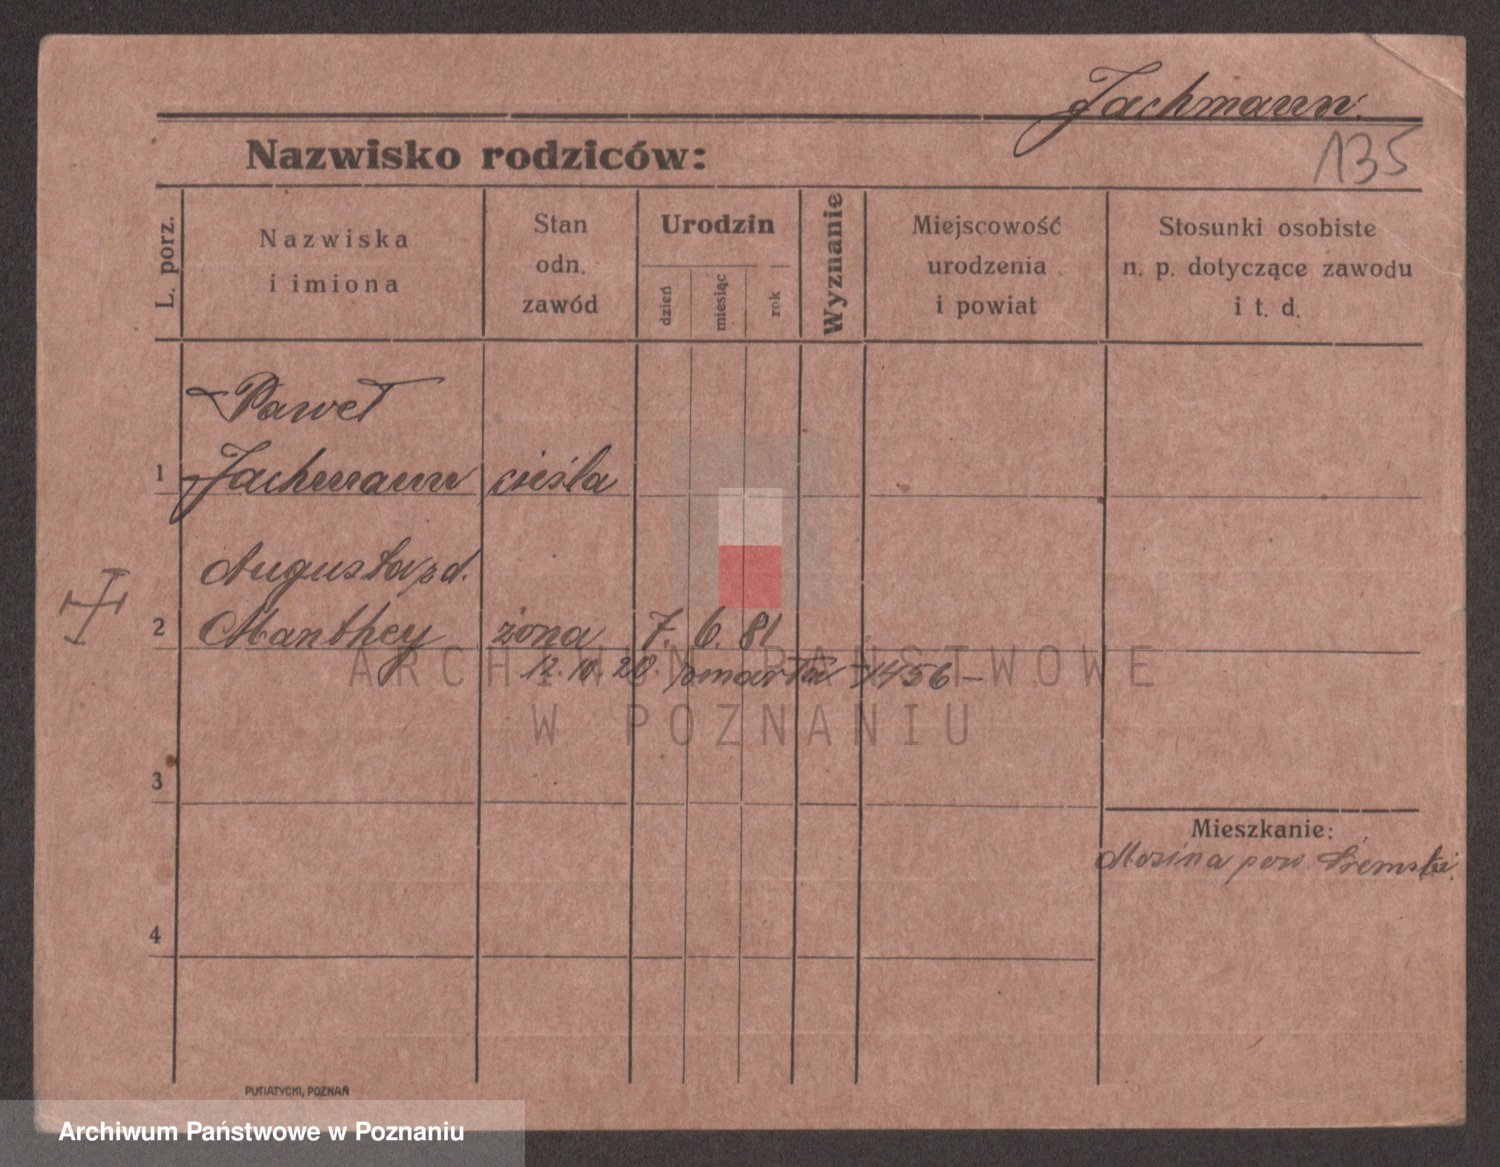 Jachmann.
135
Nazwisko rodziców:
L. porz.
Nazwiska
i imiona
Stan
odn.
zawód
Urodzin
dzień
miesiąc
rok
Wyznanie
Miejscowość
urodzenia
i powiat
Stosunki osobiste
n. p. dotyczące zawodu
i t. d.
Paweł
1 Jachmann cieśla
Augusta zd.
2 Manthey żona 7. 6. 81
12. 10. 28. zmarła 1456 –
3
Mieszkanie:
Mosina pow. Śremski.
4
PUTIATYCKI, POZNAŃ
ARCHIWUM PAŃSTWOWE
W POZNANIU
Archiwum Państwowe w Poznaniu